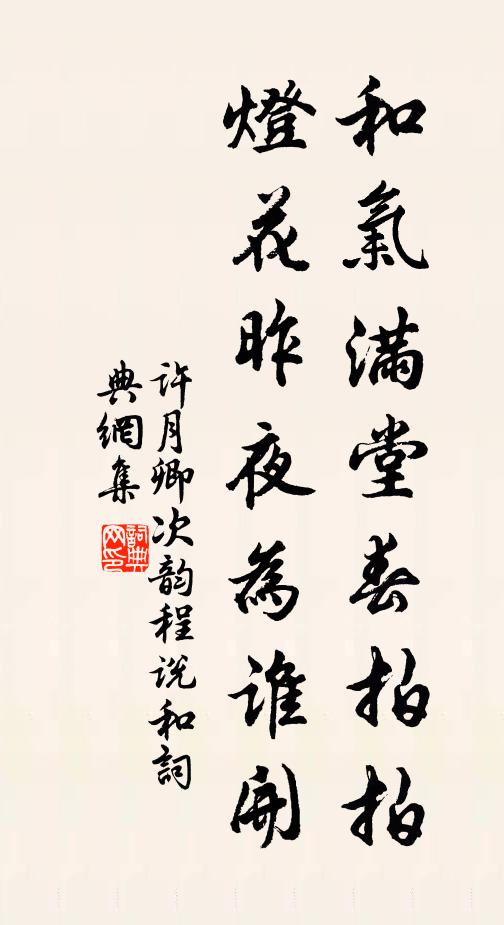 和氣滿堂春拍拍
燈花昨夜為誰開
許月卿次韵程説和詞
典網集
詞典
网印